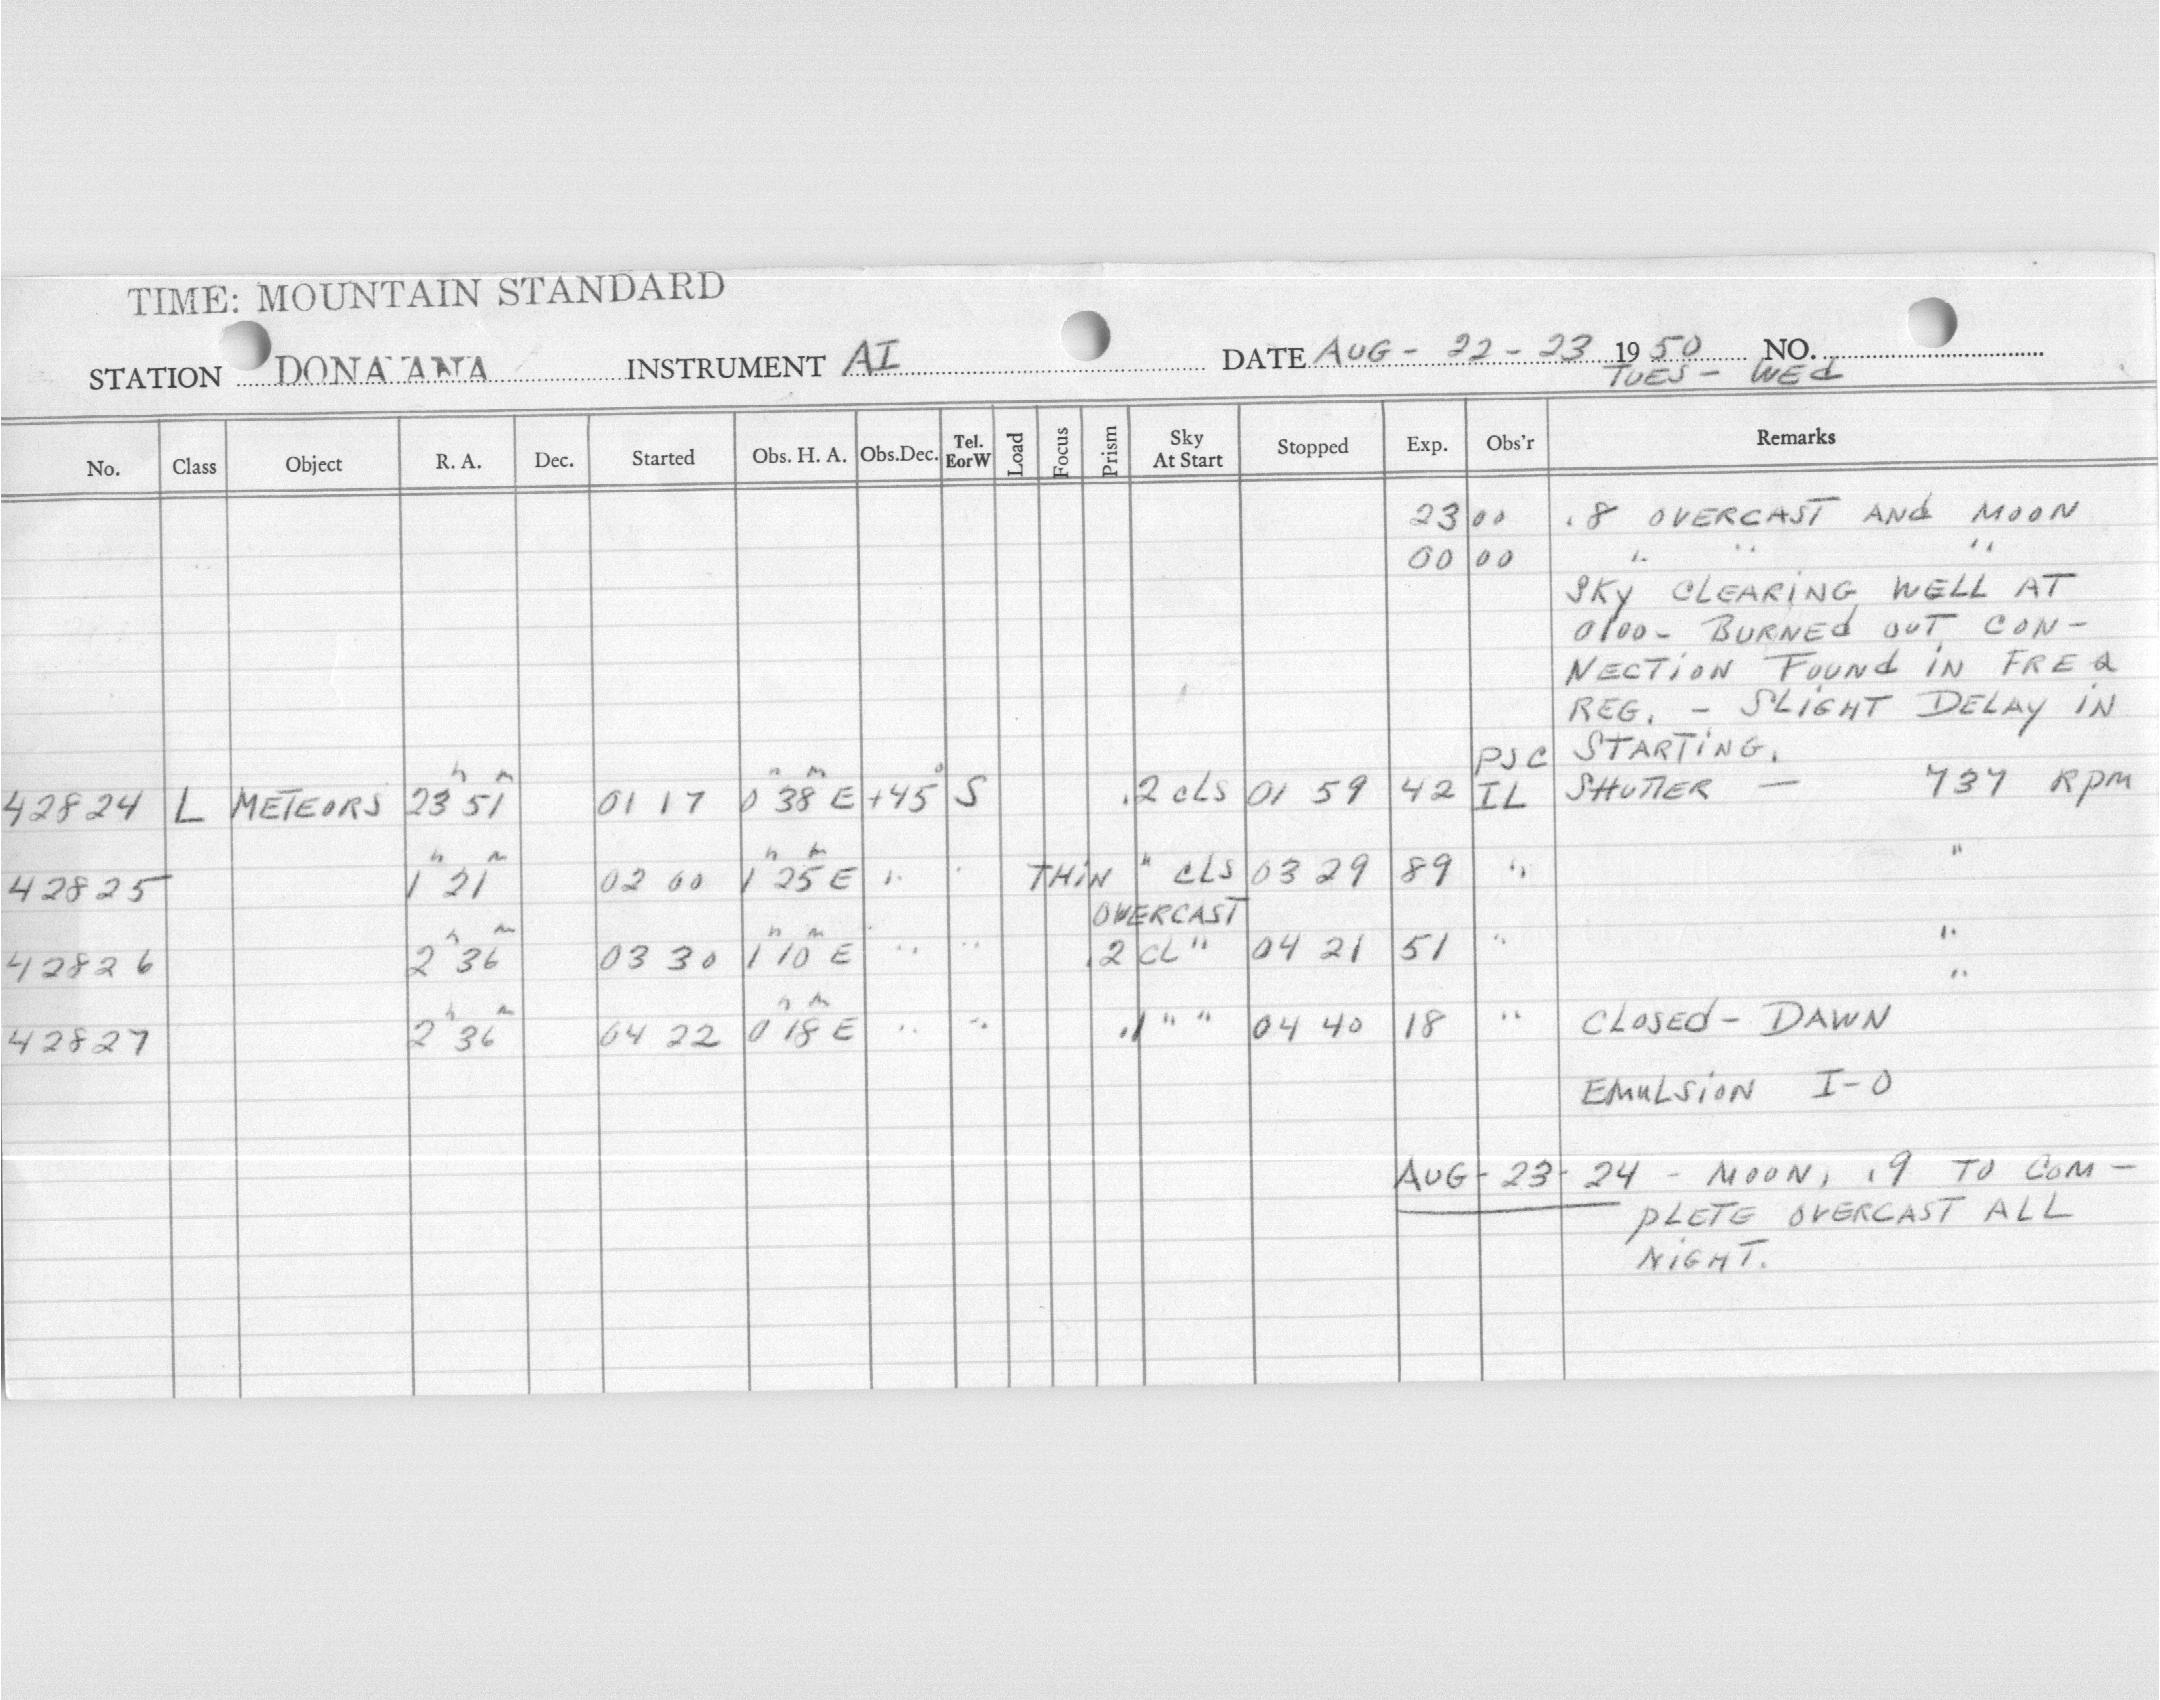 TIME: MOUNTAIN STANDARD
STATION DONA ANA INSTRUMENT AI DATE AUG - 22 - 23 1950 NO.
TUES - WEd
No. Class Object R. A. Dec. Started Obs. H. A. Obs.Dec. Tel. EorW Load Focus Prism Sky At Start Stopped Exp. Obs'r Remarks
23 00 .8 OVERCAST ANd MOON
00 00 " " "
SKy CLEARiNG WELL AT
0100- BURNEd OUT CON-
NECTiON FOUNd iN FREQ
REG. - SLiGHT DELAy iN
PSC STARTiNG.
42824 L METEORS 23h 51m 01 17 0h 38m E +45° S .2 cLs 01 59 42 IL SHUTTER — 737 RPM
42825 1h 21m 02 00 1h 25m E " " THiN " cLs 03 29 89 " "
OVERCAST
42826 2h 36m 03 30 1h 10m E " " .2 CL " 04 21 51 " "
"
42827 2h 36m 04 22 0h 18m E " " .1 " " 04 40 18 " CLOSEd - DAWN
EMULSiON I-O
AUG - 23 - 24 - MOON, .9 TO COM-
PLETE OVERCAST ALL
NiGHT.